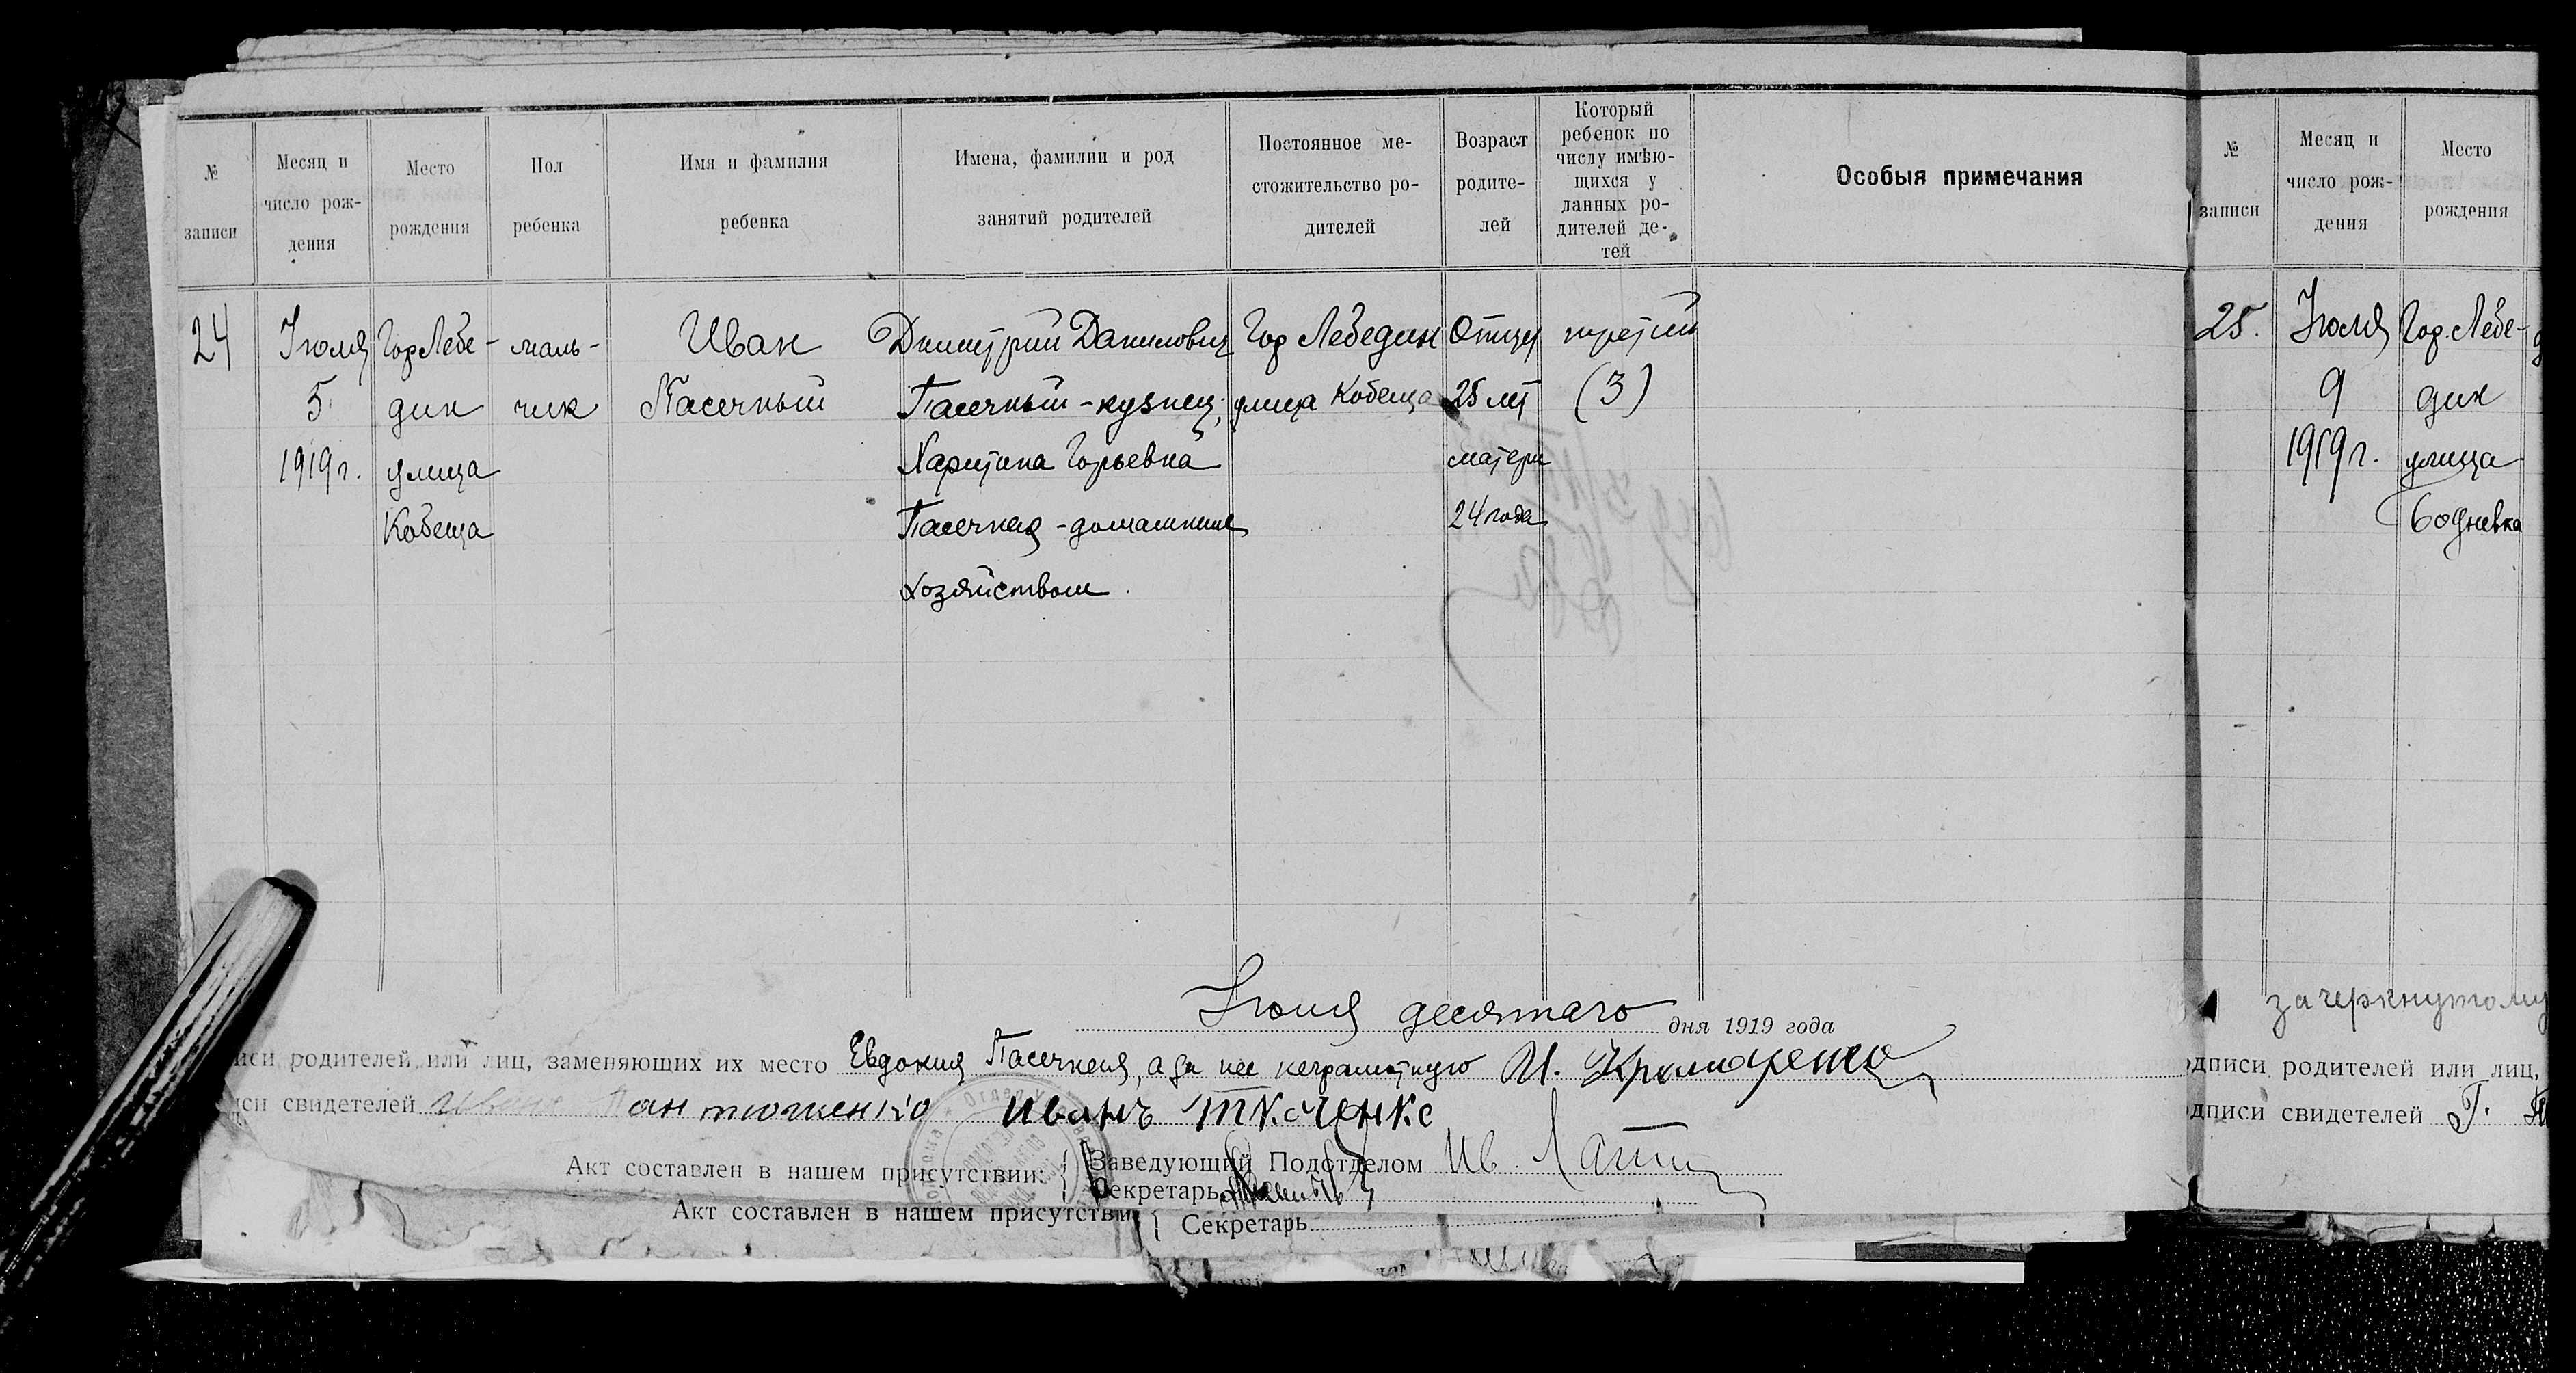 № записи
Месяц и число рож- дения
Место рождения
Пол ребенка
Имя и фамилия ребенка
Имена, фамилии и род занятий родителей
Постоянное ме- стожительство ро- дителей
Возраст родите- лей
Который ребенок по числу имѣю- щихся у данных ро- дителей де- тей
Особыя примечания
24
Июля
5
1919 г.
Гор Лебе-
дин
улица
Кобеща
маль-
чик
Иван
Пасечный
Димитрий Данилович
Пасечный - кузнец;
Харитина Горьевна
Пасечная - домашним
хозяйством.
Гор Лебедин
улица Кобеща
Отцу
25 лет
матери
24 года
третий
(3)
Июля десятаго дня 1919 года
иси родителей или лиц, заменяющих их место Евдокия Пасечная, а за нее неграмотную И.
иси свидетелей Иван Пантюшенко Иванъ Ткаченко
Акт составлен в нашем присутствии: Заведующий Подотделом Ив.
Секретарь
Акт составлен в нашем присутстви
Секретарь
№ записи
Месяц и число рож- дения
Место рождения
25.
Июля
9
1919 г.
Гор. Лебе-
дин
улица
зачеркнутому
одписи родителей или лиц,
одписи свидетелей Г.